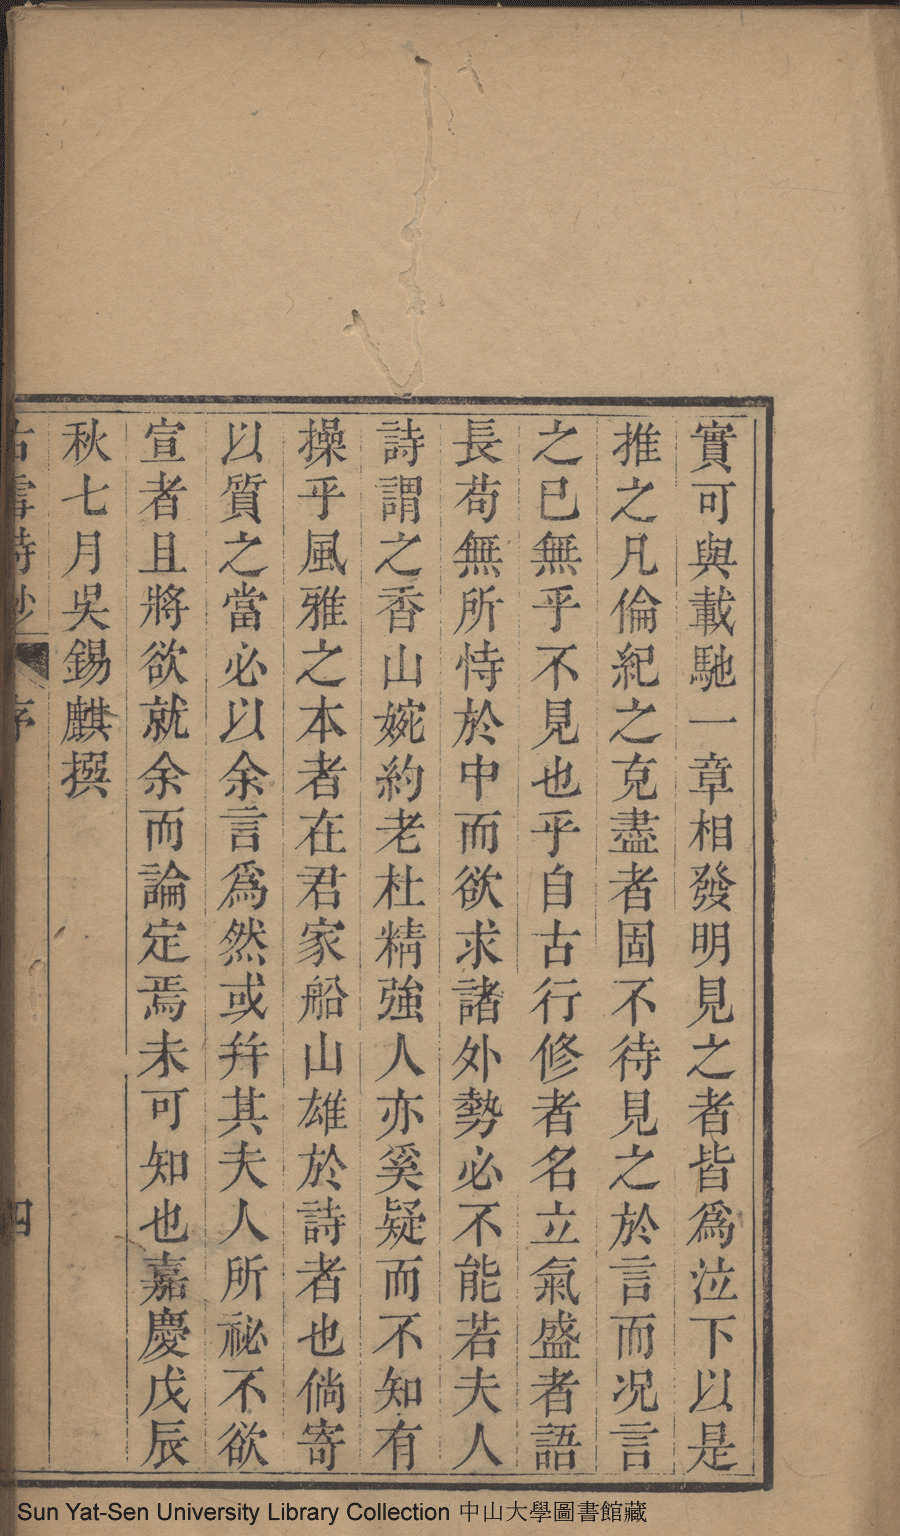 實可與載馳一章相發明見之者皆爲泣下以是
推之凡倫紀之克盡者固不待見之於言而况言
之已無乎不見也乎自古行修者名立氣盛者語
長苟無所恃於中而欲求諸外勢必不能若夫人
詩謂之香山婉約老杜精強人亦奚疑而不知有
操乎風雅之本者在君家船山雄於詩者也倘寄
以質之當必以余言爲然或幷其夫人所祕不欲
宣者且將欲就余而論定焉未可知也嘉慶戊辰
秋七月吳錫麒撰
古雪詩鈔
序
四
Sun Yat-Sen University Library Collection 中山大學圖書館藏